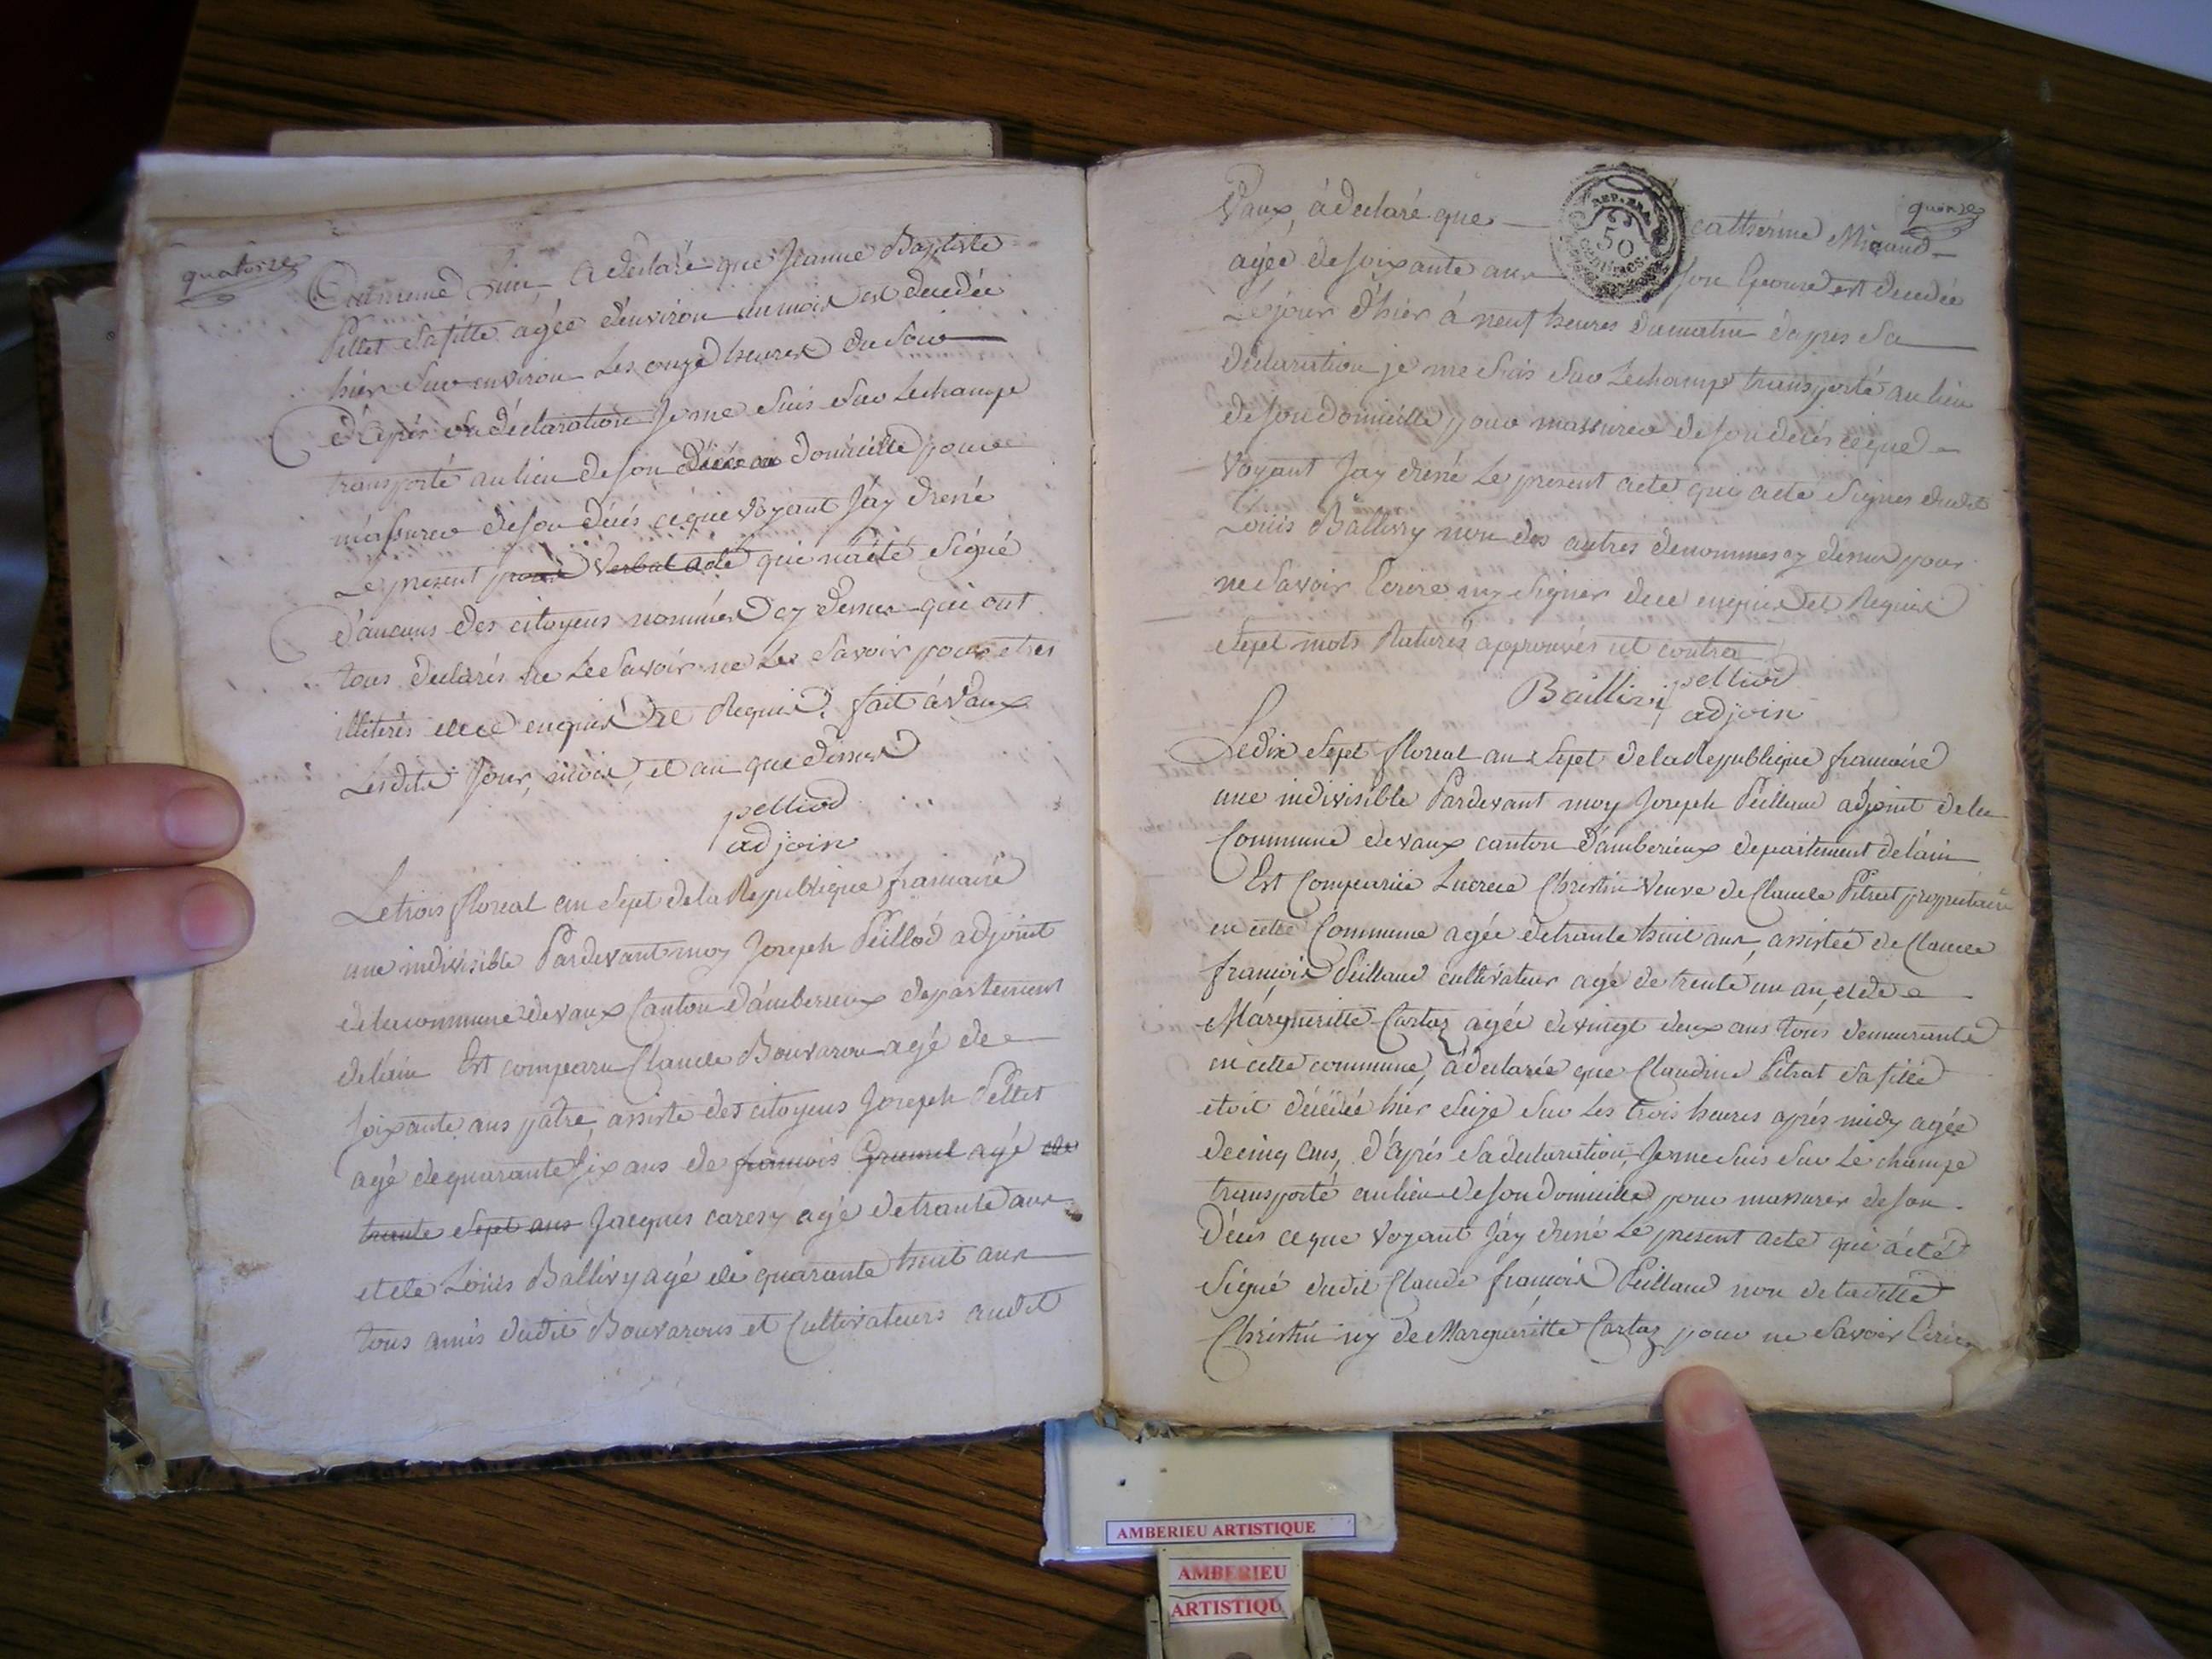 quatorze
Commune a declaré que Jeanne Baptiste
Pellet sa fille agée d'environ un mois est decedée
hier sur environ les onze heures du soir
D'après sa déclaration Je me suis sur lechamp
transporté au lieu de son domicille pour
m'assurer de son décés ce que voyant J'ay dressé
Le present procé verbal acte qui n'a été signé
d'aucuns des citoyens nommés cy dessus qui ont
tous declarés ne le savoir ne les savoir pour etres
illiterés de ce enquis et Requis. fait à Vaux
Lesdits Jour, mois, et an que dessus
pelliod
adjoin
Le trois floreal an sept de la Republique francaise
une indivisible Pardevant moy Joseph Peillod adjoint
de la commune de vaux Canton d'amberieux departement
de lain Est comparu Claude Bouvaron agé de
soixante ans pâtre, assisté des citoyens Joseph Pellet
agé de quarante six ans de francois Grumel agé de
trante sept ans Jacques caresy agé de trante ans
et de Louis Ballivy agé de quarante huit ans
tous amis dudit Bouvarons et Cultivateurs audit
quinze
Vaux, à declaré que catherine Migand
REP. FRA.
50
CENTIMES
agée de soixante ans son Epouse est decedée
Le jour d'hier à neuf heures du matin dapres sa
declaration je me suis sur lechamp transporté au lieu
de son domicille pour massurer de son decés ce que
voyant Jay dressé le present acte qui a eté signes dudit
Louis Ballivry non des autres denommes cy dessus pour
ne savoir Ecrire ny signer de ce enquis et Requis
sept mots Raturés approuvés ut contra
Baillivi pelliod
adjoin
Le dix sept floreal an sept de la Republique francaise
une indivisible Pardevant moy Joseph Peillaud adjoint de la
Commune de vaux canton d'amberieux departement de lain
Est Comparüe Lucrece Christin Veuve de Claude Pitrat propriétaire
en cette Commune agée de trante huit ans, assistée de Claude
francois Peillaud cultivateur agé de trente un an, et de
Margueritte Cartaz agée de vingt deux ans tous demeurants
en cette commune, à declarée que Claudine Pitrat sa fille
etoit décédée hier seize sur les trois heures après midy agée
de cinq ans, d'après sa declaration, Je me suis sur le champs
transporté au lieu de son Domicille pour massurer de son
Décés ce que voyant Jáy dressé le present acte qui à eté
signé dudit Claude françois Peillaud non de ladite
Christin ny de Margueritte Cartaz pour ne savoir Ecrire
AMBERIEU ARTISTIQUE
AMBERIEU
ARTISTIQU